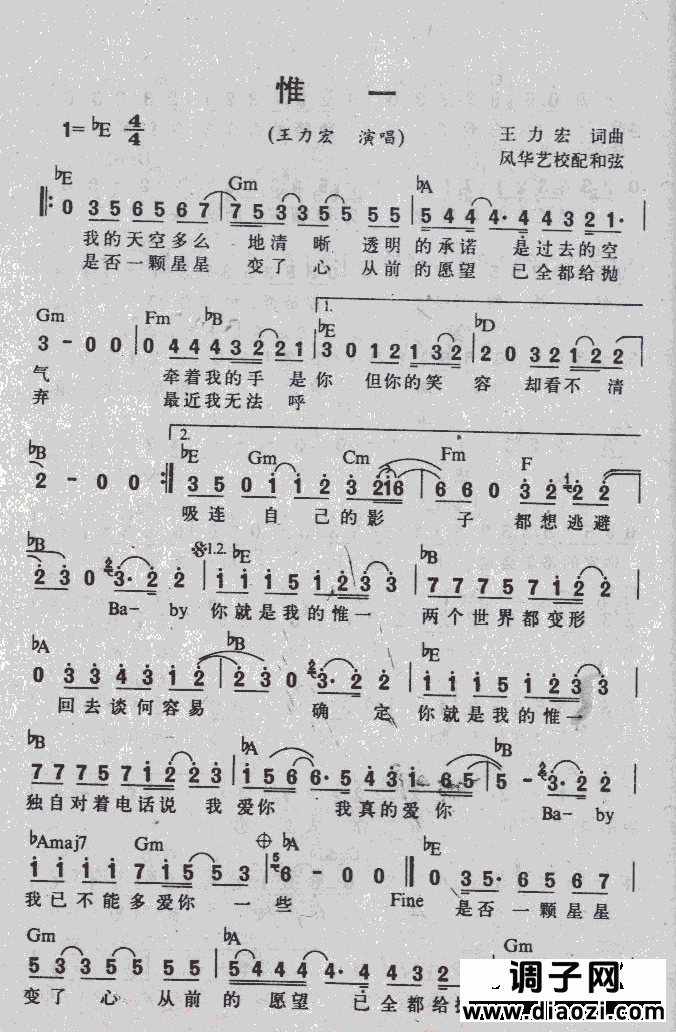 惟 一
1= ♭E 4/4 (王力宏 演唱) 王 力 宏 词曲
风华艺校配和弦
♭E Gm ♭A
0 3 5 6 5 6 7 7 5 3 3 5 5 5 5 5 4 4 4· 4 4 3 2 1·
我的天空多么 地清 晰 透明 的承诺 是过去的空
是否一颗星星 变了 心 从前 的愿望 已全都给抛
Gm Fm ♭B 1. ♭E ♭D
3 – 0 0 0 4 4 4 3 2 2 2 1 3 0 1 2 1 3 2 2 0 3 2 1 2 2
气 牵着我的手 是你 但你的笑 容 却看不 清
弃 最近我无法 呼
♭B 2. ♭E Gm Cm Fm F
2 – 0 0 3 5 0 1 1 2 3 2 1 6 6 6 0 3 2 1 2 2
吸连 自 己的影 子 都想逃避
♭B 1.2. ♭E ♭B
2 3 0 2 3· 2 2 1 1 1 5 1 2 3 3 7 7 7 5 7 1 2 2
Ba- by 你就是我的惟一 两个世界都变形
♭A ♭B ♭E
0 3 3 4 3 1 2 2 3 0 2 3· 2 2 1 1 1 5 1 2 3 3
回去谈何容易 确 定 你就是我的惟一
♭B ♭A ♭B
7 7 7 5 7 1 2 2 3 1 5 6 6· 5 4 3 1 6 5 5 – 2 3· 2 2
独自对着电话说 我 爱你 我真的爱 你 Ba- by
♭Amaj7 Gm ♭A ♭E
1 1 1 1 7 1 5 5 3 5 6 – 0 0 0 3 5· 5 6 7
我已不能多爱你 一 些 Fine 是否 一颗星星
Gm ♭A Gm
5 3 3 3 5 5 5 5 5 4 4 4 4· 4 4 3 2
变了 心 从前 的 愿望 已全都给
调子网
www.diaozi.com